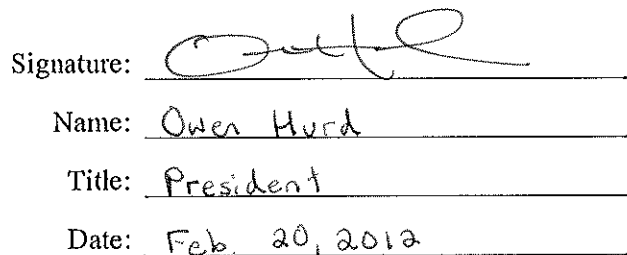 Signature:
Name: Owen Hurd
Title: President
Date: Feb. 20, 2012